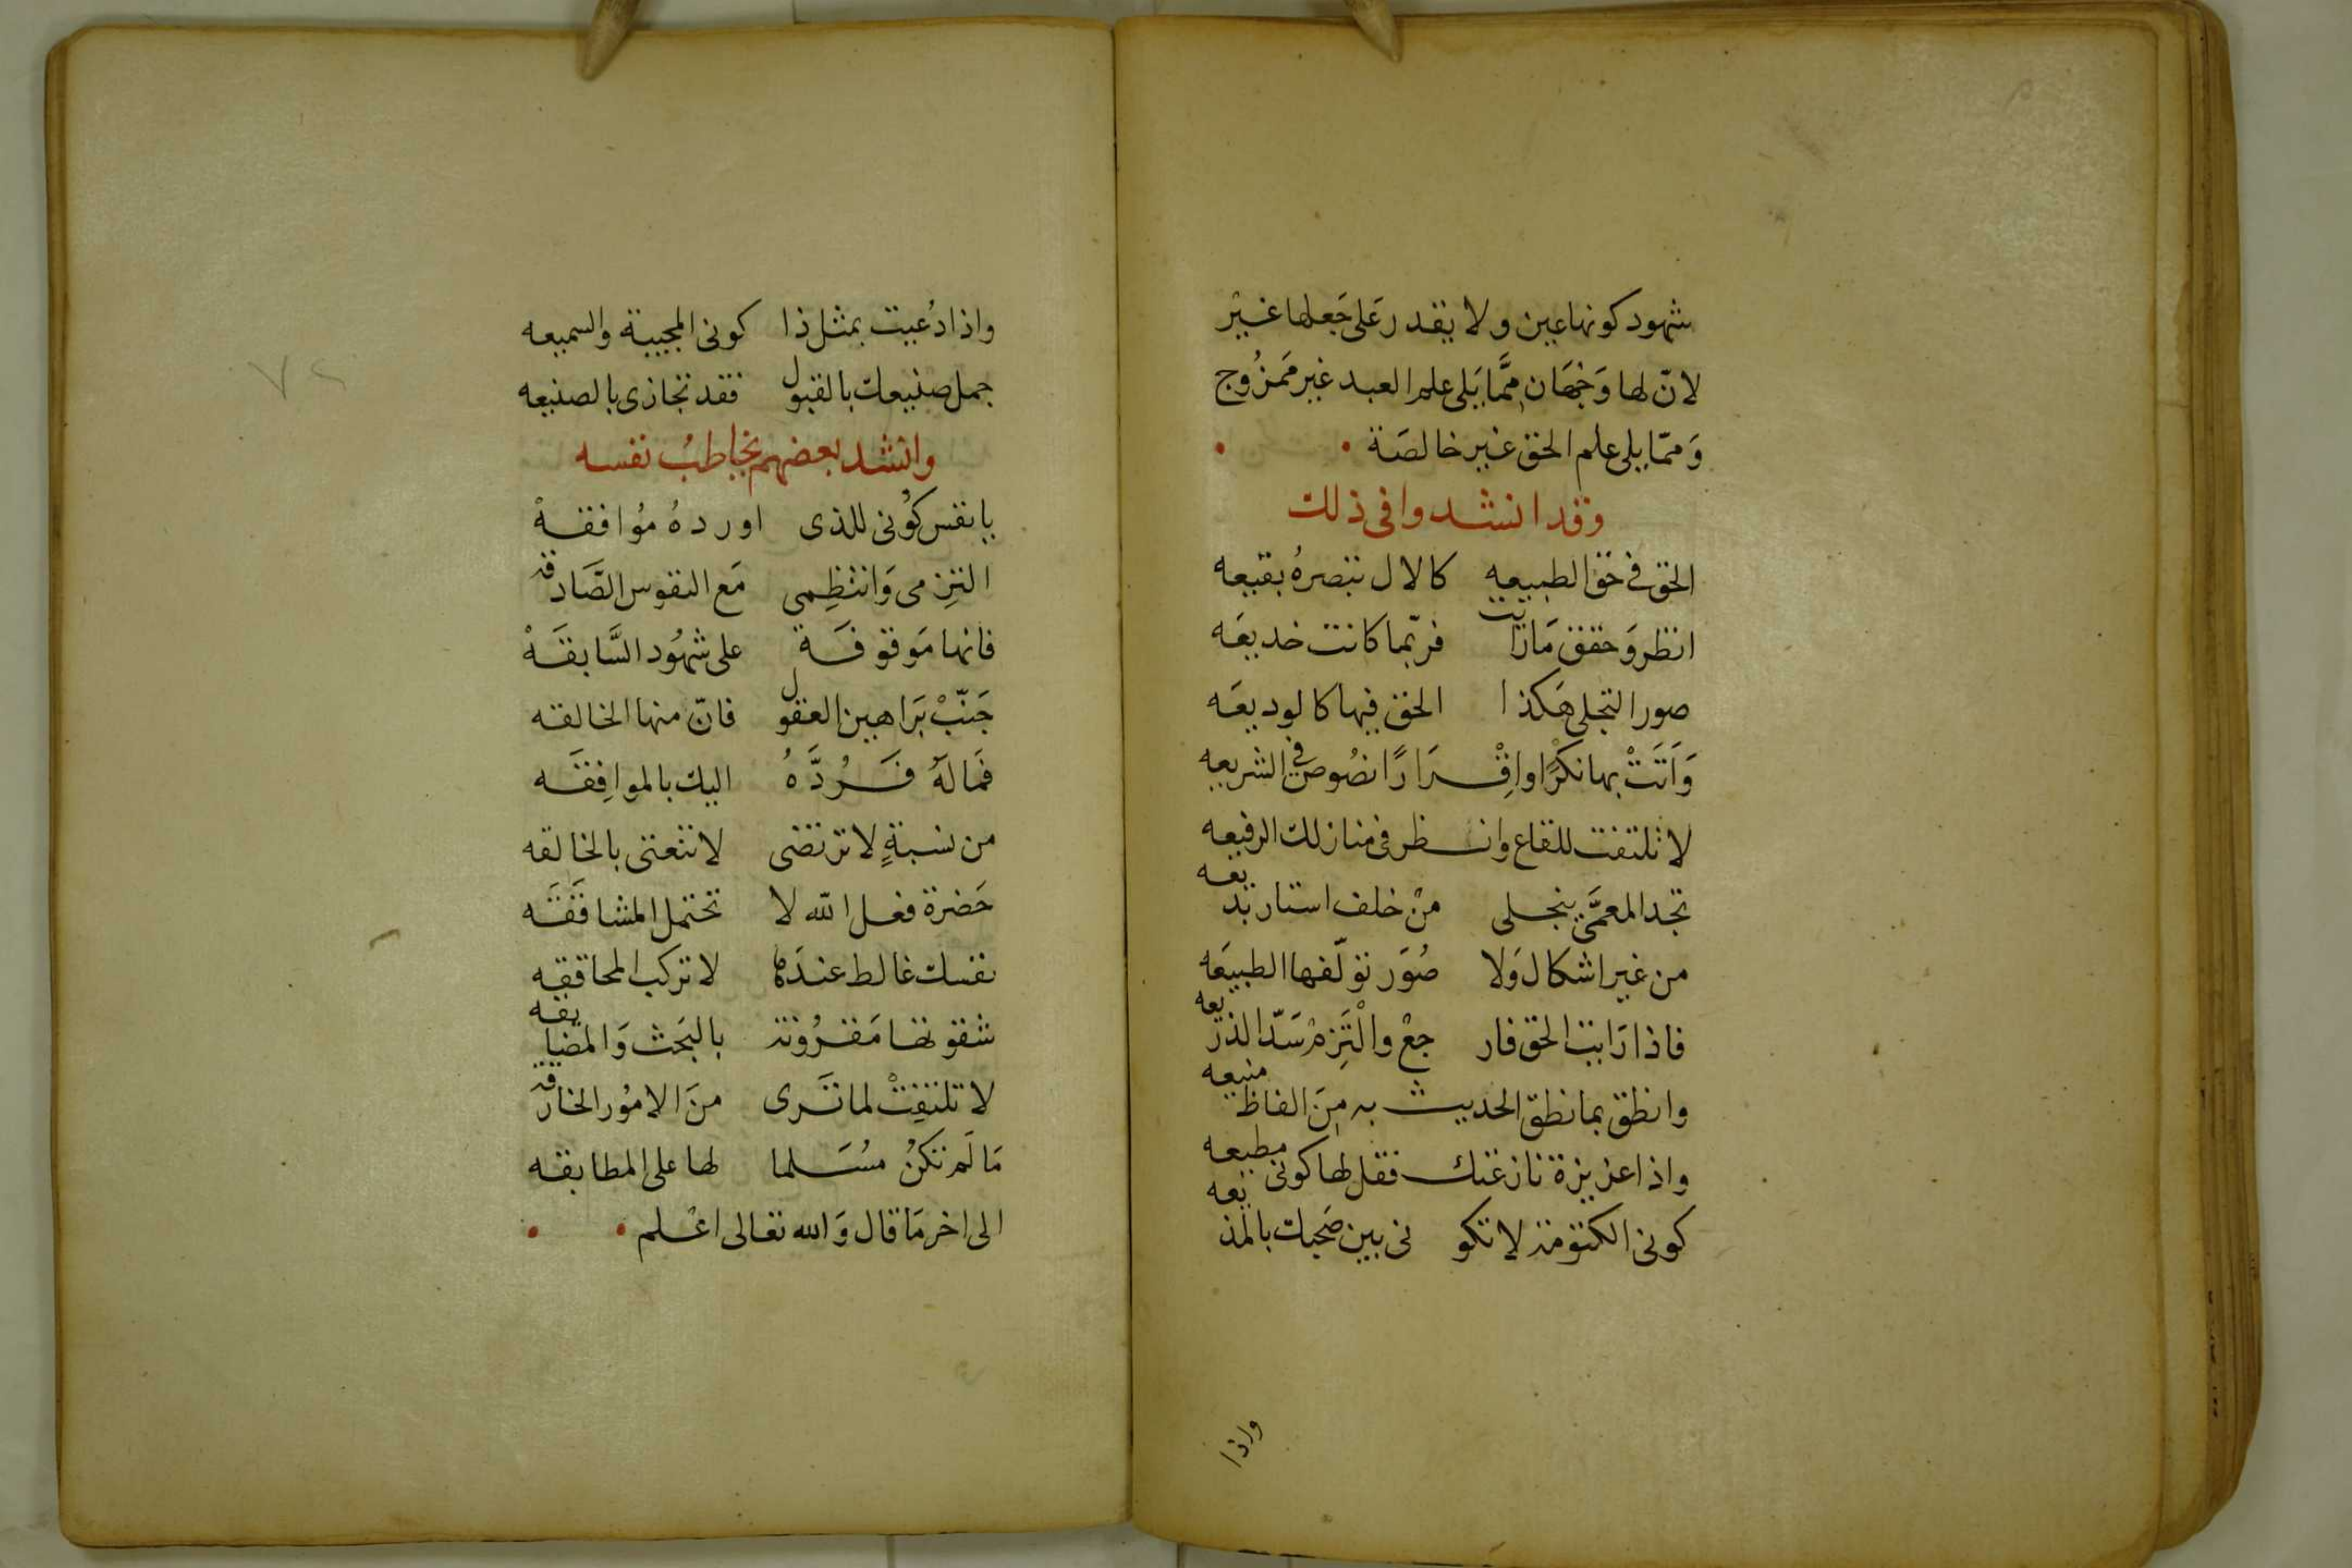 شهود كونها عين ولا يقدر على جَعلها غير
لانّ لها وَجهان ممَّا يَلى علم العبد غير مَمزُوج
وَممّا يلى علم الحق غير خالصَة
وقد انشدوا فى ذلك
الحق فى حق الطبيعه كالال تبصرهُ بقيعه
انظر وَحقق مَا رَايت فربّما كانت خديعَه
صور التجلى هَكذا الحق فيها كالوديعَه
وَاَتَتْ بها نكرًا واِقْرَارًا نصُوص فى الشريعه
لا تلتفت للقاع وانظر فى منازلك الرفيعه
تجد المعمَّى ينجلى منْ خلف استار بديعه
من غير اشكال وَلا صُوَر تولّفها الطبيعَه
فاذا رَايت الحق فارجعْ والْتَزِمْ سَدّ الذريعه
وانطق بما نطق الحديث به مِنَ الفاظ منيعه
واذا عزيزة نازعتك فقل لها كونى مطيعه
كونى الكتومة لا تكونى بين صَحبك بالمذيعه
واذا
واذا دُعيت بمثل ذا كونى المجيبة والسميعه
جمل صنيعك بالقبول فقد تجازى بالصنيعه
وانشد بعضهم يخاطبُ نفسه
يا نفس كوُنى للذى اوردهُ مُوافقهْ
التزِمى وَانتظِمى مَع النفوس الصَّادقه
فانها مَوقوفَة على شهُود السَّابقَهْ
جَنّبْ بَراهين العقول فانّ منها الخالقه
فمَالَهُ فَرُدَّهُ اليك بالموافِقَه
من نسبةٍ لا ترتضى لا تعتنى بالخالقه
حَضرة فعل الله لا تحتمل المشاقَقَه
نفسك غالط عندَهَا لا تركب المحاققه
شقوتها مَقرُونة بالبَحث وَالمضايقه
لا تلتفِتْ لما تَرى منَ الامُور الخارقَه
مَا لَم تكنْ مُسَلما لها على المطابقه
الى اخر مَا قال وَالله تعالى اعْلم